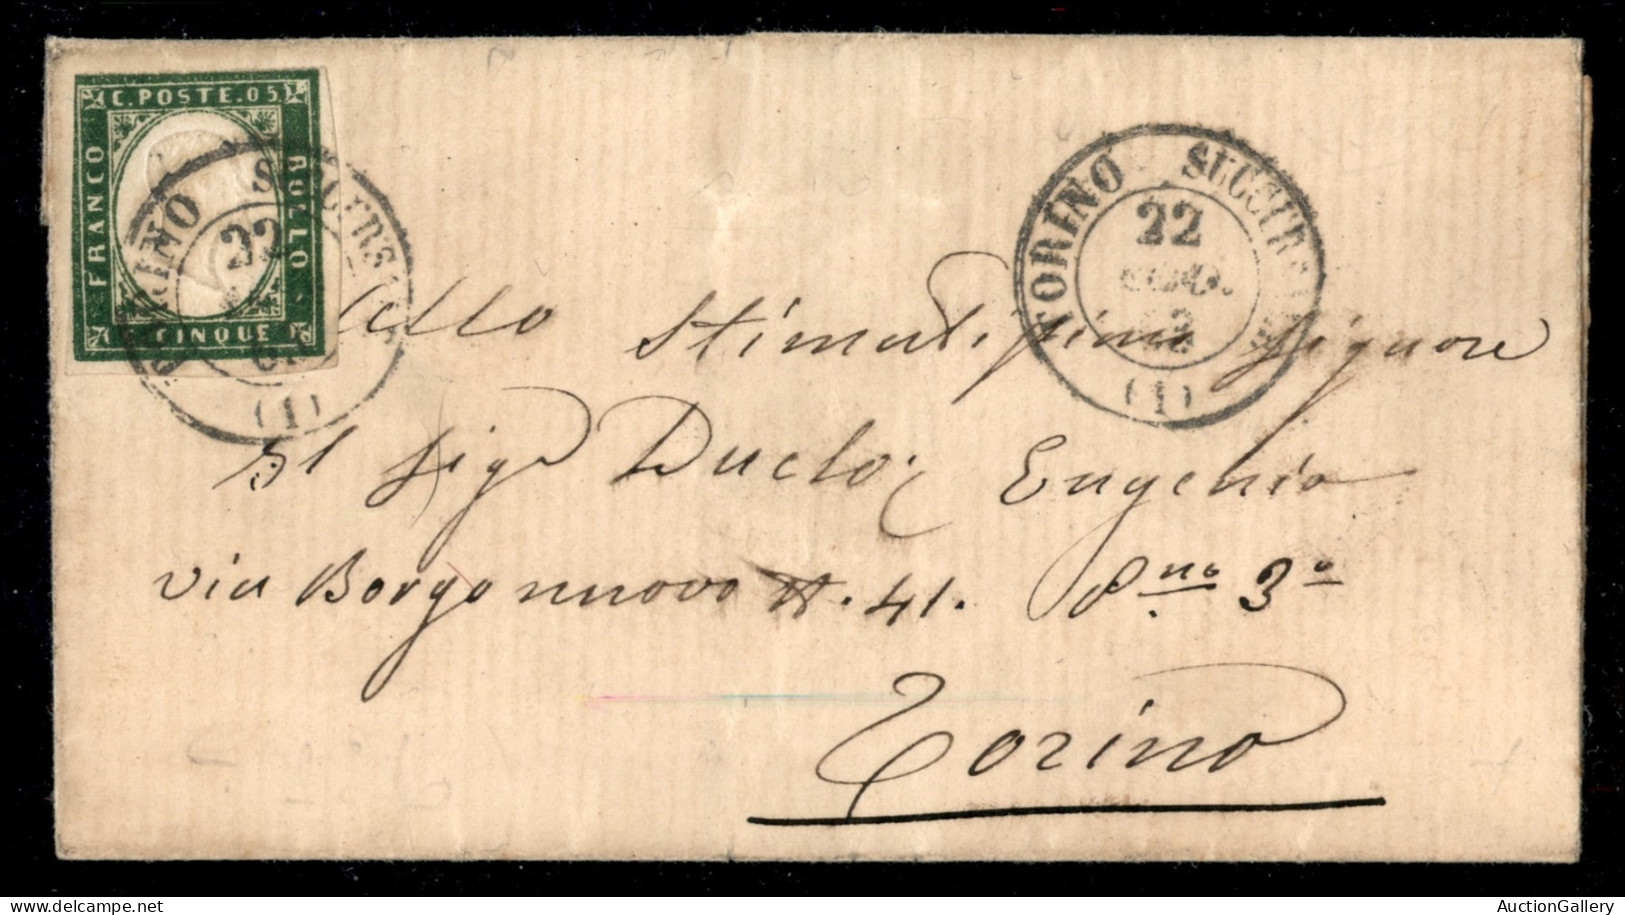 C. POSTE. 05
FRANCO
BOLLO
CINQUE
TORINO SUCCURSALE
22
(1)
TORINO SUCCURSALE
22
(1)
Allo Stimatissimo Signore
Il Sig. Eugenio
via Borgo nuovo N. 41. Pno 3o
Torino
AuctionGallery